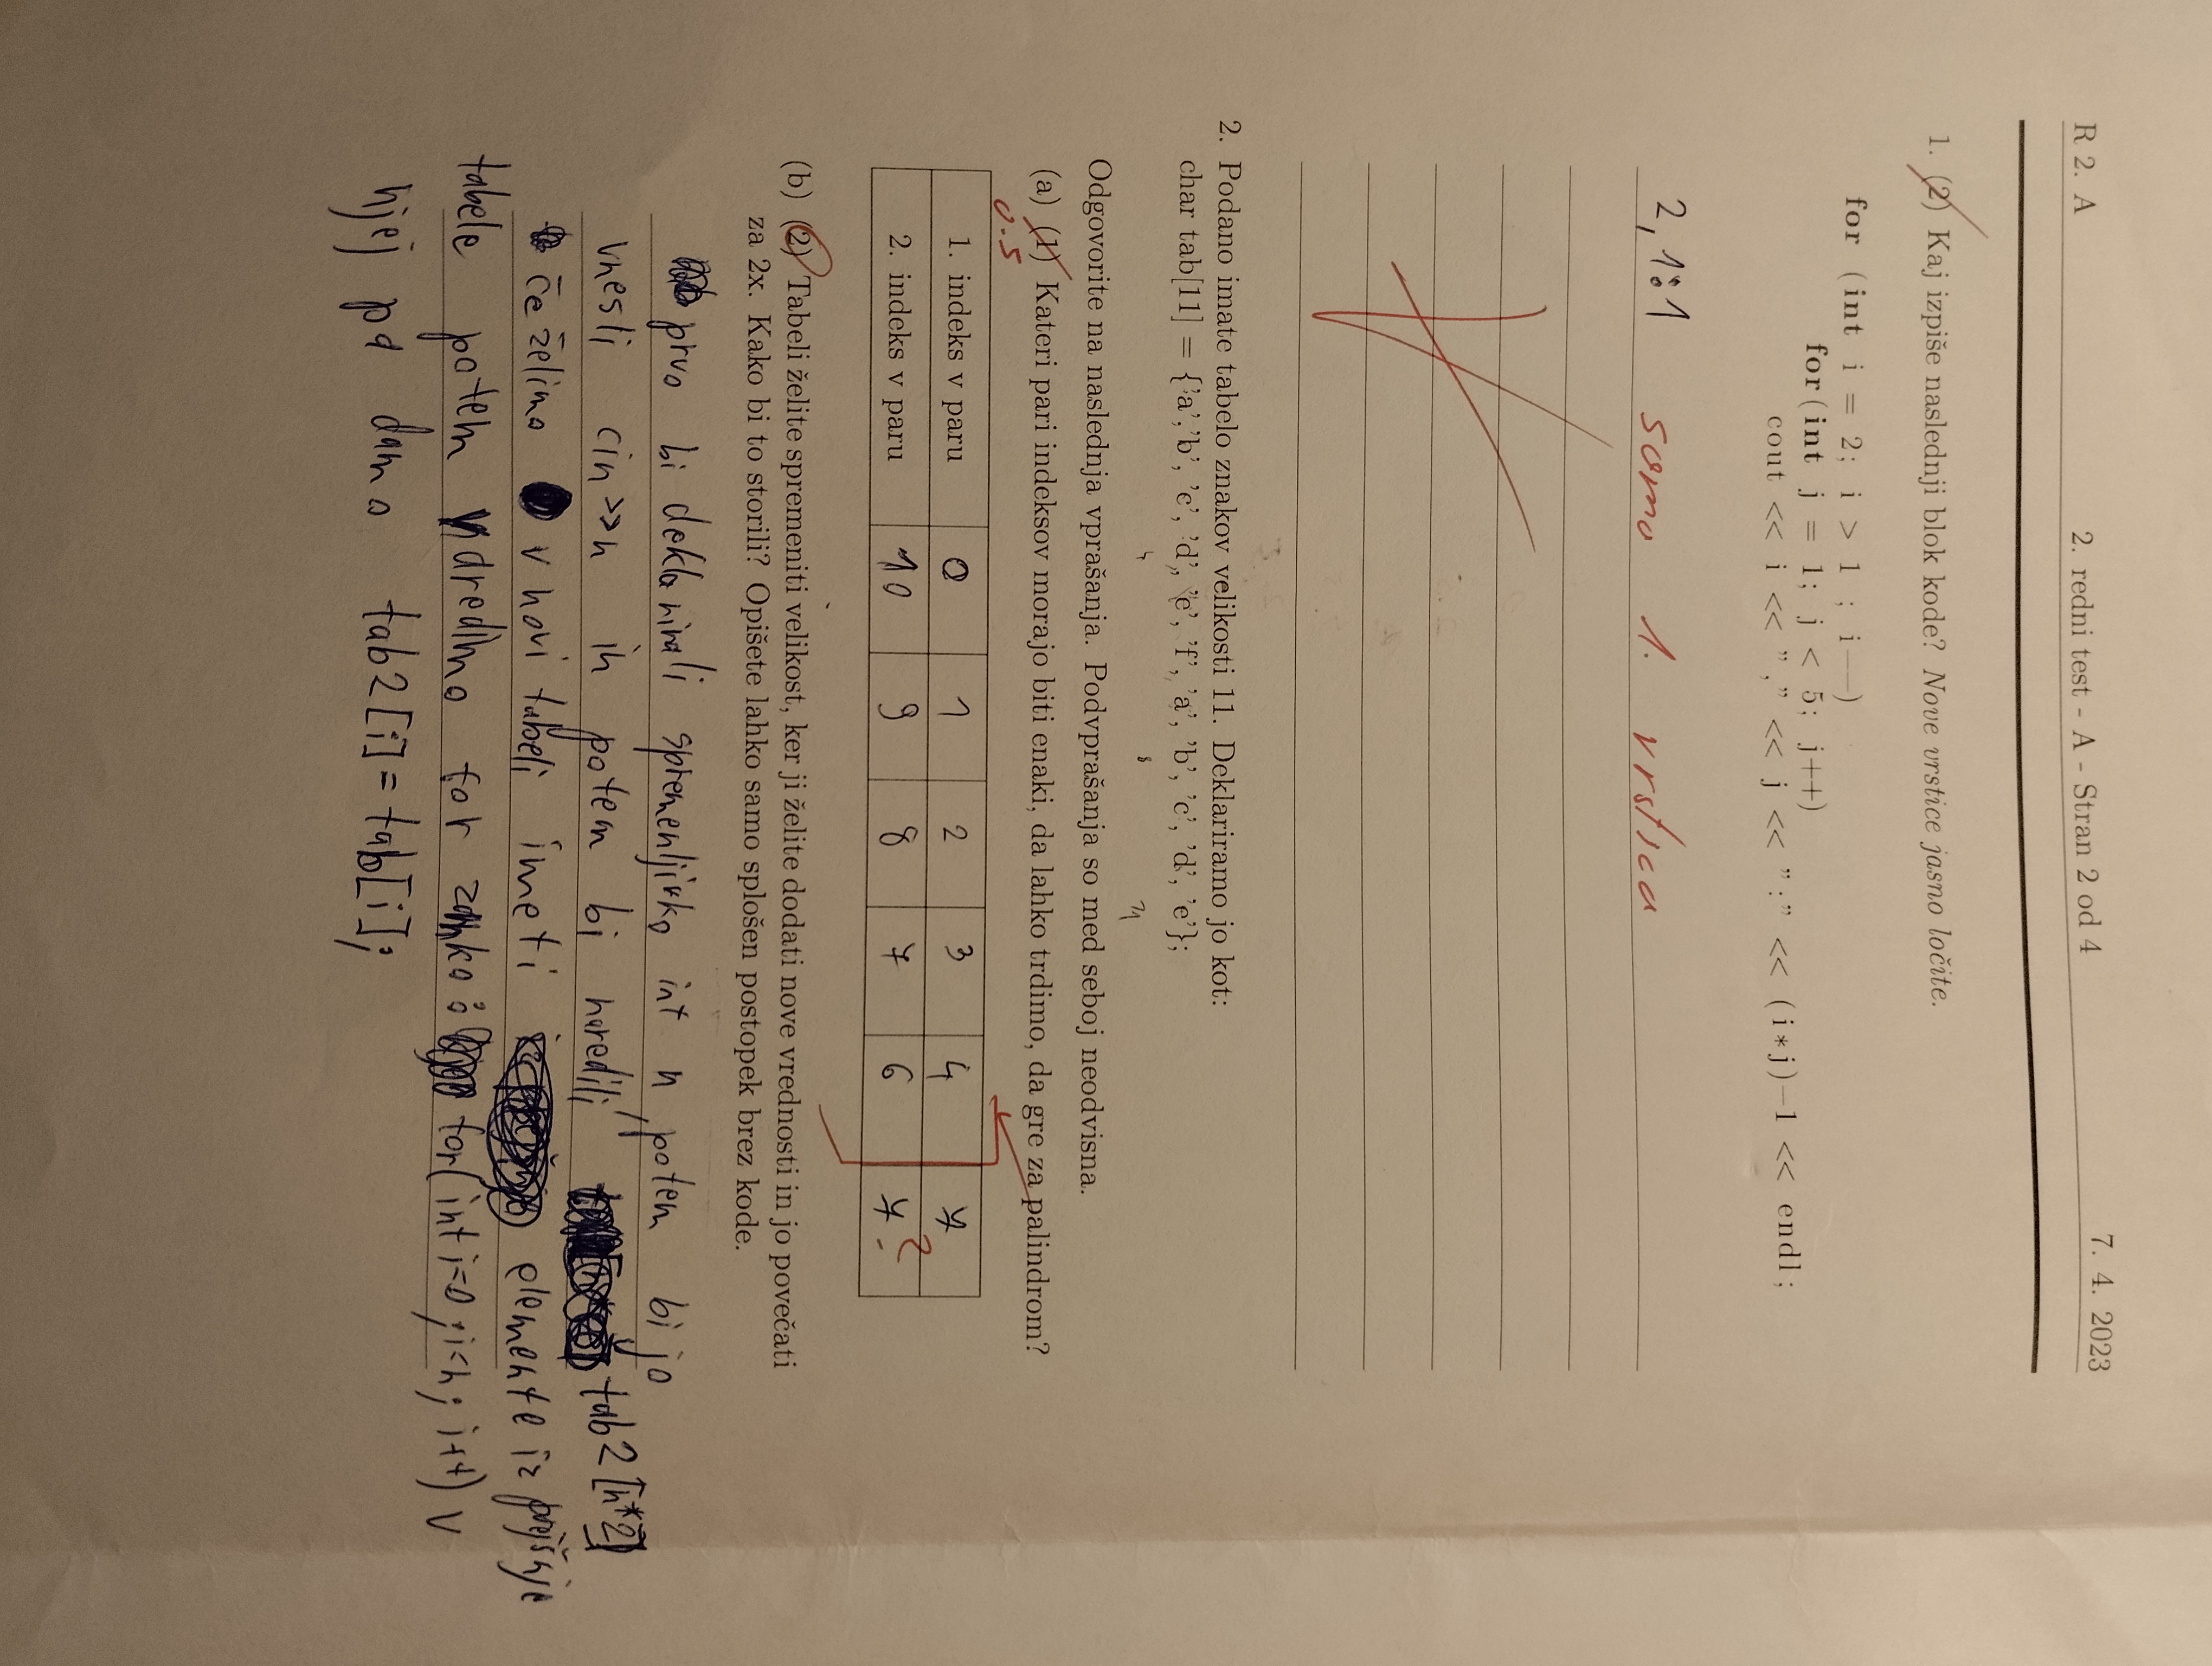 R 2. A 2. redni test - A - Stran 2 od 4 7. 4. 2023
1. (2) Kaj izpiše naslednji blok kode? Nove vrstice jasno ločite.
for (int i = 2; i > 1 ; i--)
for(int j = 1; j < 5; j++)
cout << i << "," << j << ":" << (i*j)-1 << endl;
2,1:1 samo 1. vrstica
2. Podano imate tabelo znakov velikosti 11. Deklariramo jo kot:
char tab[11] = {'a','b', 'c', 'd', 'e', 'f', 'a', 'b', 'c', 'd', 'e'};
4 8 11
Odgovorite na naslednja vprašanja. Podvprašanja so med seboj neodvisna.
(a) (1) Kateri pari indeksov morajo biti enaki, da lahko trdimo, da gre za palindrom?
0.5
1. indeks v paru 0 1 2 3 4 7
2. indeks v paru 10 9 8 7 6 7 ?
(b) (2) Tabeli želite spremeniti velikost, ker ji želite dodati nove vrednosti in jo povečati
za 2x. Kako bi to storili? Opišete lahko samo splošen postopek brez kode.
prvo bi deklarirali spremenljivko int n, potem bi jo
vnesli cin>>n in potem bi naredili tab2[n*2]
če želimo v novi tabeli imeti elemente iz prejšnje
tabele potem naredimo for zanko: for(int i=0;i<n; i++) v
njej pa damo tab2[i]=tab[i];